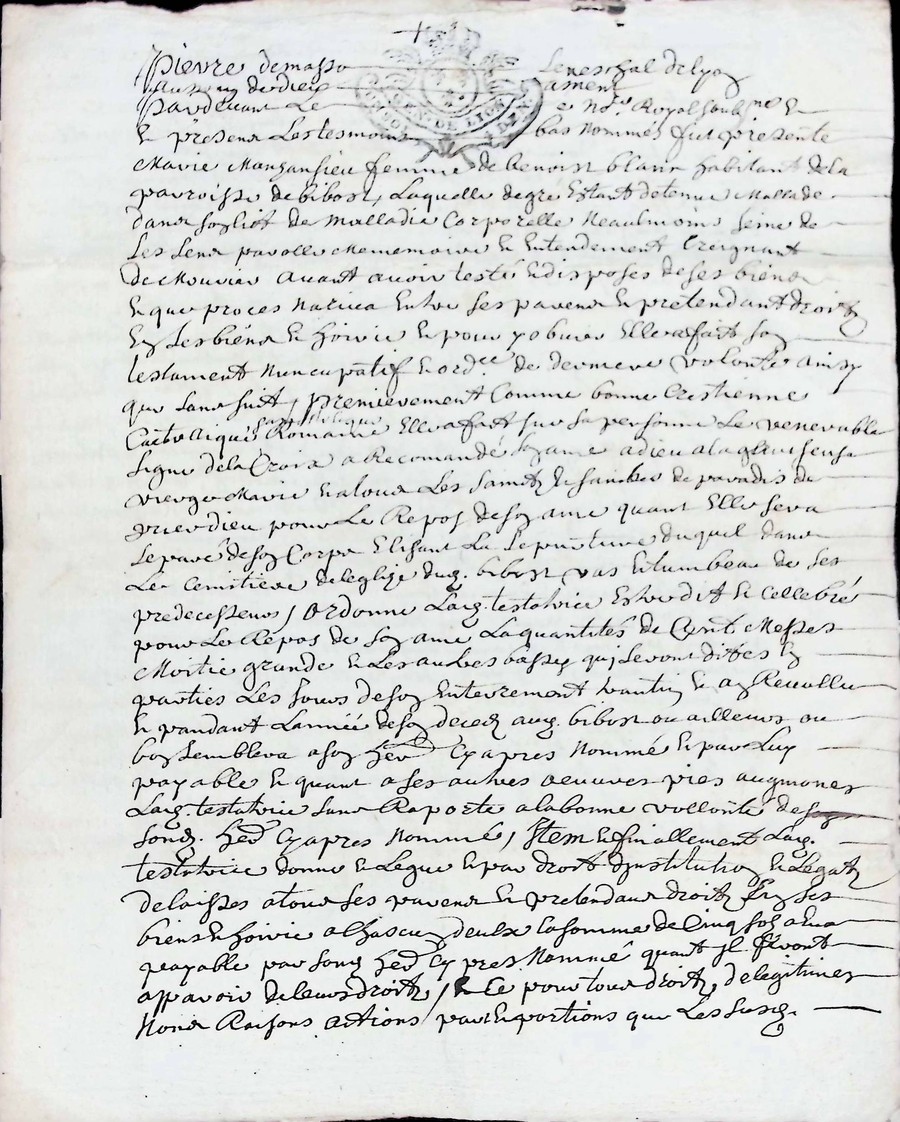 Pierre de masso Seneschal de lyon
Au nom de dieu amen
Pardevant Le No.re Royal soub.ne Et
Et presens Les tesmoins bas Nommés fut presente
Marie femme de benoist blanc habitant de la
parroisse de bibost, Laquelle de gré Estant detenue Mallade
dans son lict de Malladie Corporelle Neaulmoins seine de
Les sens parolle Mememoire Et Entendement Creignant
de Mourir avant avoir testé Et disposes de ses biens
Et que proces Natica Entre ses parens Et pretendant droitz
En Les biens Et hoirie Et pour y obvier Elle a fait son
testament Nuncupatif Et ord.ce de derniere volonté ainsy
que sans suit / premierement Comme bonne Crestienne
Romaine Elle a fait sur sa personne Le venerable
signe de la Croix a Recomandé son ame a dieu a la glorieuse
vierge Marie Et a tous Les Saintz Et Sainctes de paradis de
prier dieu pour Le Repos de son ame quant Elle sera
separé de son Corps Elisant La Sepulture duquel dans
Le Cemitiere de leglize dud. bibost vas Et tumbeau de ses
predecesseurs / Ordonne Lad. testatrice Estre dit Et Cellebré
pour Le Repos de son ame La quantités de Cent Messes
Moitié grande Et Les autres basses qui seront dittes En
parties Les Jours de son Enterrement Et au Revollu
Et pandant Lannée de son deces aud. bibost ou ailleurs ou
bon semblera a son her. Cy apres Nommé Et par Luy
payable Et quant a ses autres oeuvres pies augmones
Lad. testatrice sans Raporte a la bonne vollonté de son
sond. her. Cy apres Nommé / Item Et finallement Lad.
testatrice donne Et Legue Et par droit dinstitution Et Legatz
delaisses a tous ses parens Et pretendans droitz En ses
biens Et hoirie a Chascun deulx la somme de Cinq solz
payable par sond. her. Cy apres Nommé quant Il feront
apparoir de leurs droitz / Et Ce pour tous droitz de legitimes
Noms Raisons actions part Et portions que Les susd.